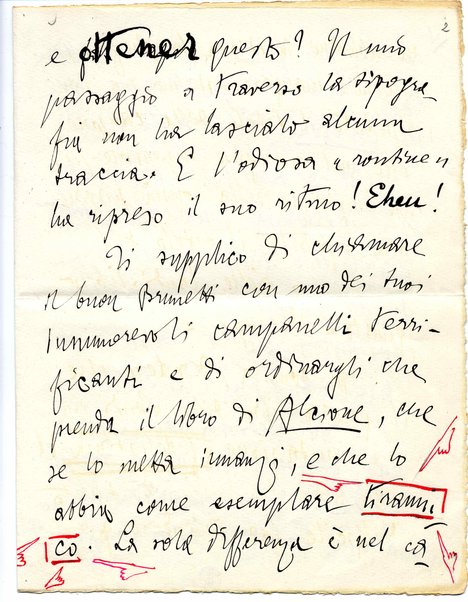 2
e ottener questo? Il mio
passaggio a traverso la tipogra-
fia non ha lasciato alcuna
traccia. E l'odiosa "routine"
ha ripreso il suo ritmo! Eheu!
Ti supplico di chiamare
il buon Brunetti con uno dei tuoi
innumerevoli campanelli terri-
ficanti e di ordinargli che
prenda il libro di Alcione, che
se lo metta innanzi, e che lo
abbia come esemplare tiranni-
co. La sola differenza è nel ca